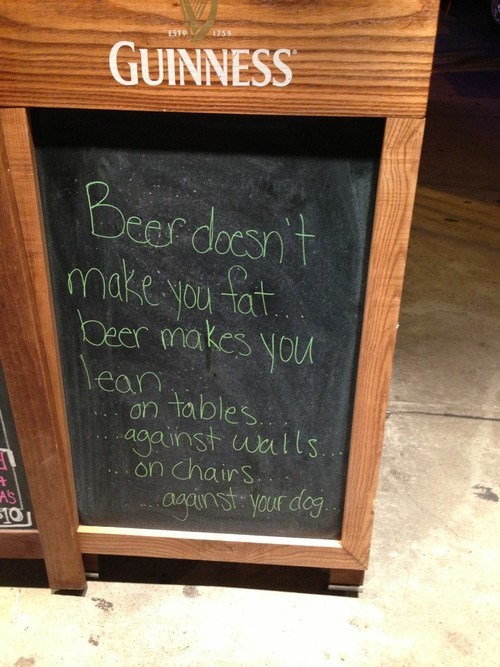 ESTD 1759
GUINNESS
Beer doesn't
make you fat...
beer makes you
lean...
... on tables...
... against walls...
... on chairs...
.... against your dog...
AS
$10